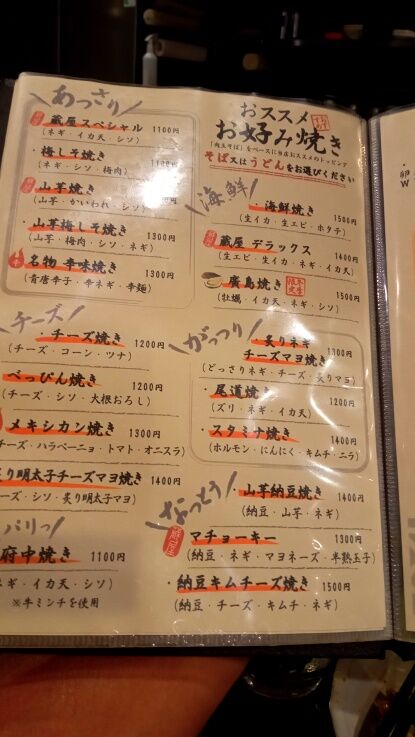 あっさり
蔵屋スペシャル 1100円
(ネギ・イカ天・シソ)
・梅しそ焼き 1100円
(ネギ・シソ・梅肉)
山芋焼き
(山芋・かいわれ・シソ)
・山芋梅しそ焼き 1300円
(山芋・梅肉・シソ・ネギ)
名物 辛味焼き 1300円
(青唐辛子・辛ネギ・辛麺)
チーズ
・チーズ焼き 1200円
(チーズ・コーン・ツナ)
べっぴん焼き 1200円
(チーズ・シソ・大根おろし)
メキシカン焼き 1300円
チーズ・ハラペーニョ・トマト・オニスラ)
り明太子チーズマヨ焼き 1400円
チーズ・シソ・炙り明太子マヨ)
パリっ
府中焼き 1100円
ネギ・イカ天・シソ)
※牛ミンチを使用
おススメ
お好み焼き
「肉玉そば」をベースに当店おススメのトッピング
そば又はうどんをお選びください
海鮮
海鮮焼き 1500円
(生イカ・生エビ・ホタテ)
蔵屋 デラックス 1400円
(生エビ・生イカ・ネギ・イカ天)
廣島焼き 1500円
(牡蠣・イカ天・ネギ・シソ)
がっつり
・炙りネギ
チーズマヨ焼き 1300円
(どっさりネギ・チーズ・炙りマヨ)
・尾道焼き 1200円
(ズリ・ネギ・イカ天)
・スタミナ焼き 1400円
(ホルモン・にんにく・キムチ・ニラ)
なっとう
・山芋納豆焼き 1400円
(納豆・山芋・ネギ)
マチョーキー 1300円
(納豆・ネギ・マヨネーズ・半熟玉子)
・納豆キムチーズ焼き 1500円
(納豆・チーズ・キムチ・ネギ)